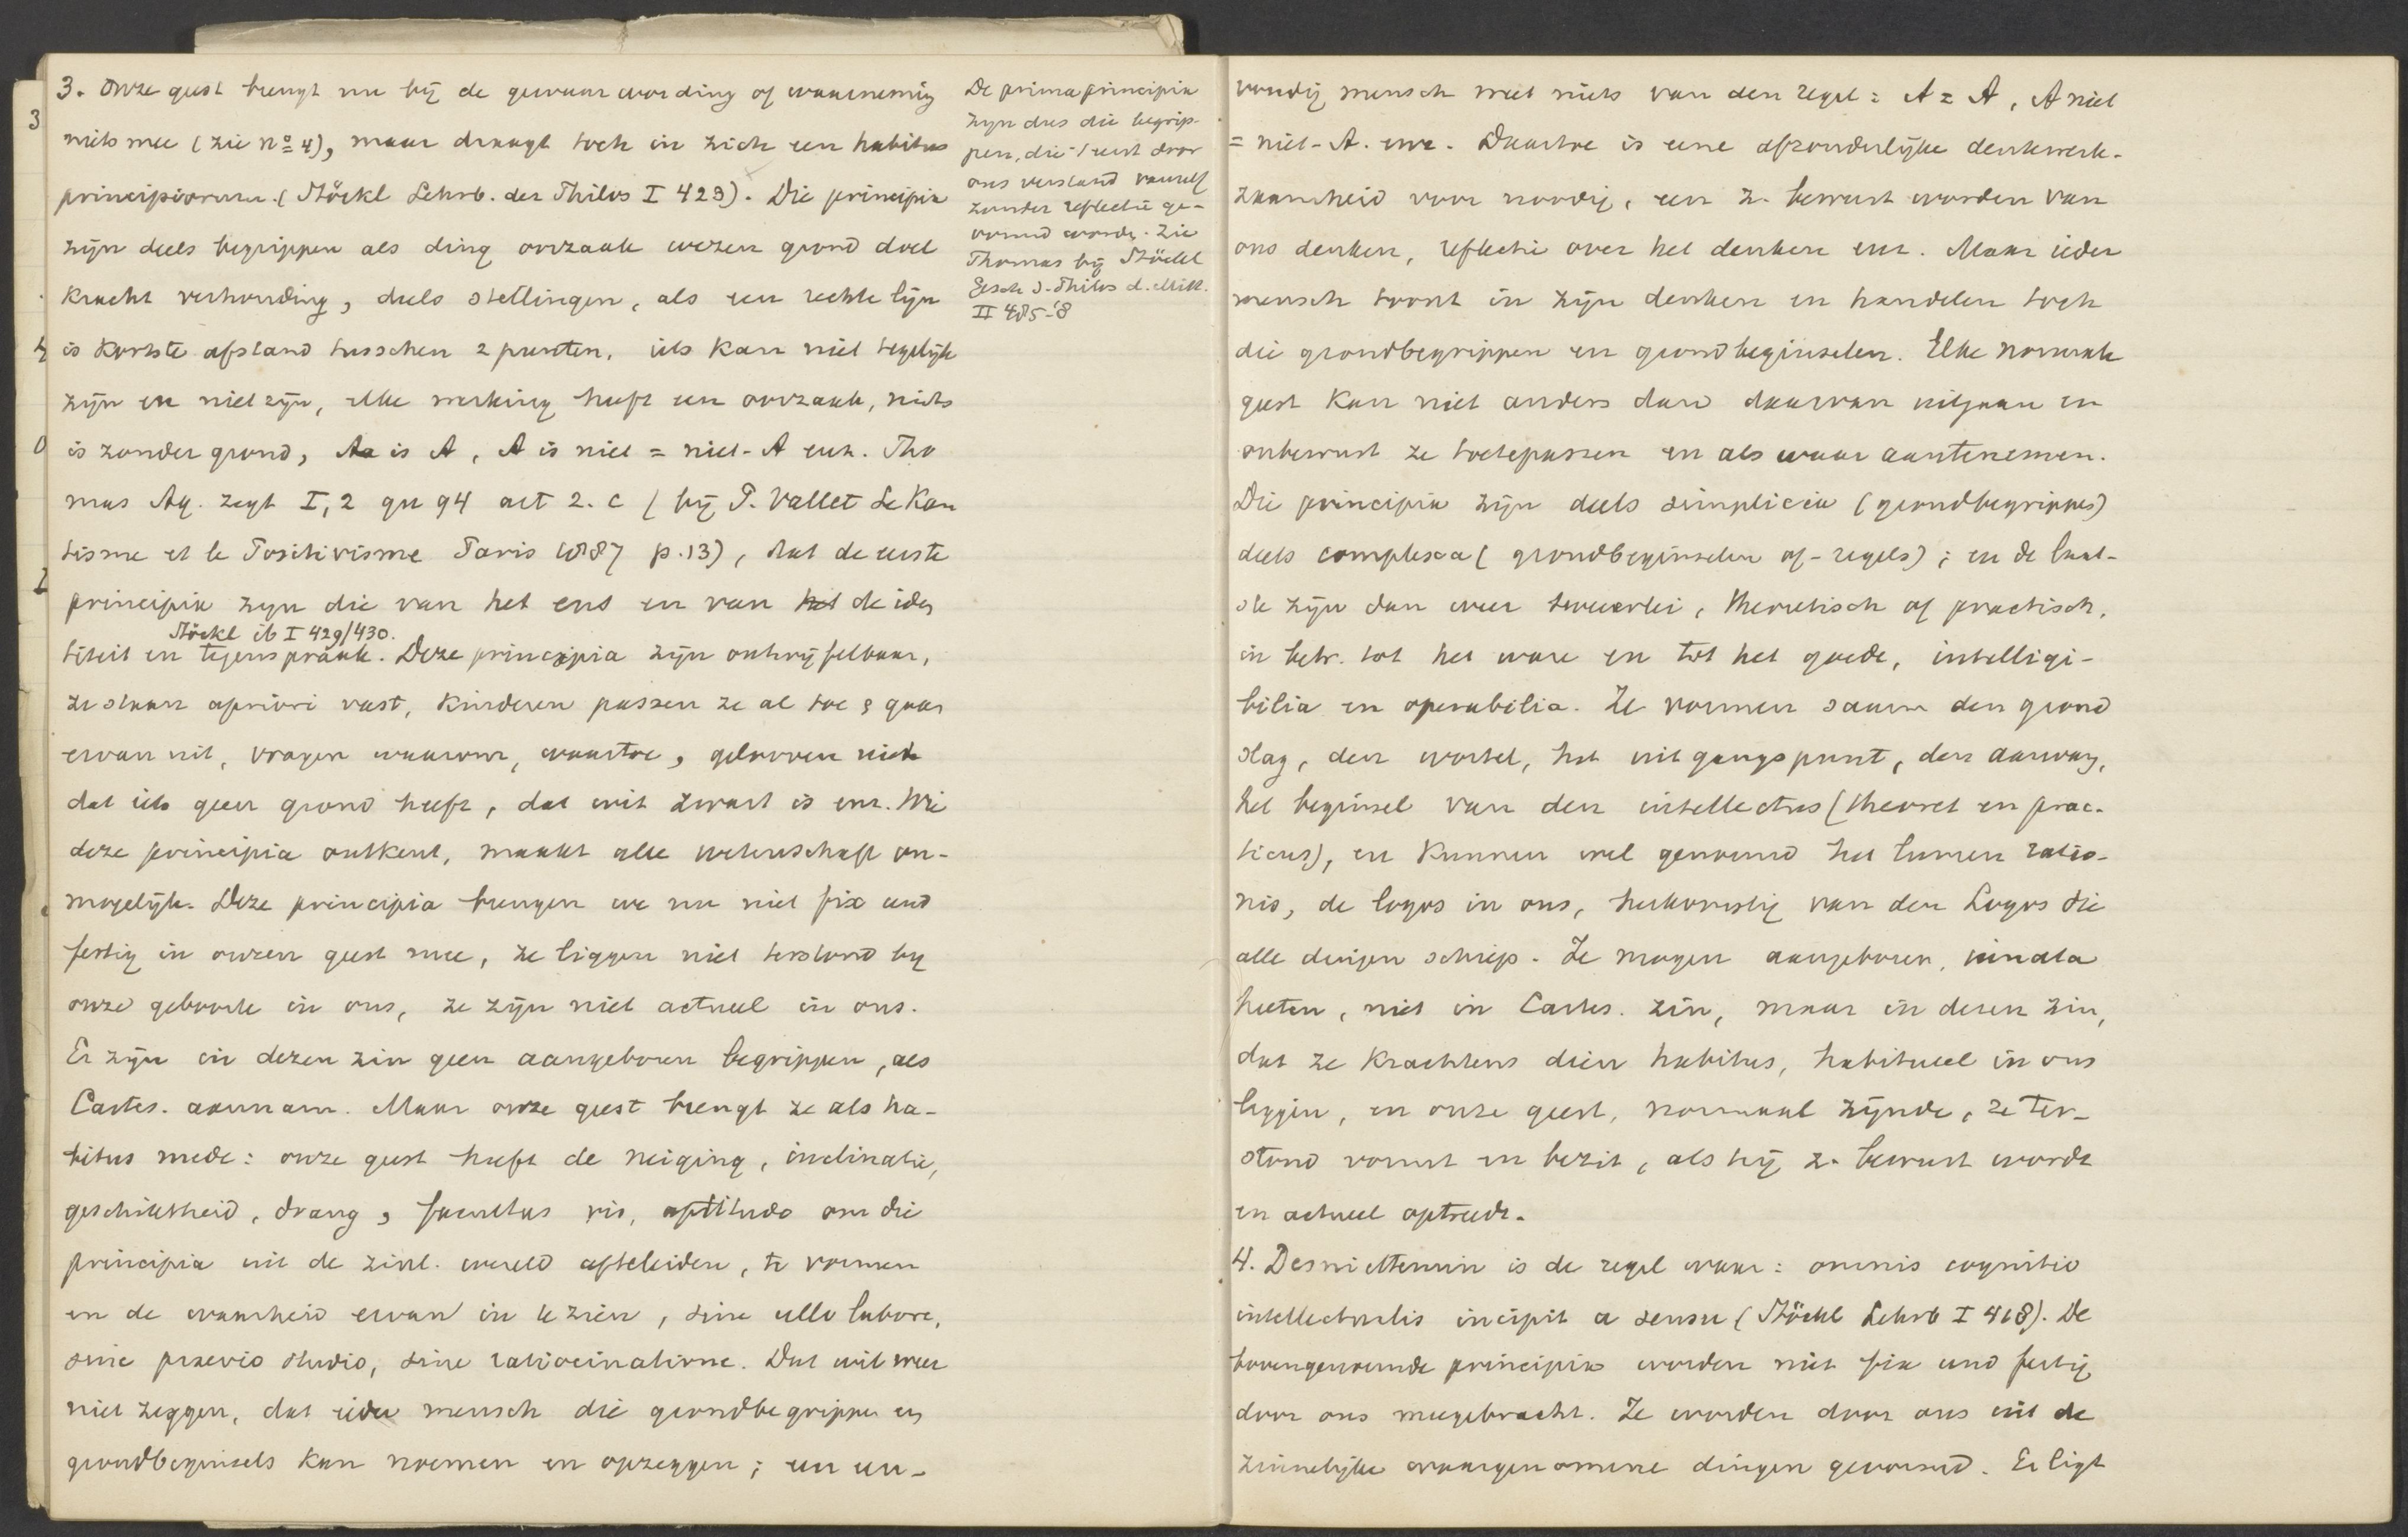 3. Onze geest brengt nu bij de gewaarwording of waarneming
niets mee (zie nº 4), maar draagt toch in zich een habitus
principiorum. (Stöckl Lehrb. der Philos I 423). Die principia
zijn deels begrippen als ding oorzaak wezen grond doel
kracht verhouding, deels stellingen, als een rechte lijn
is kortste afstand tusschen 2 punten, iets kan niet tegelijk
zijn en niet zijn, elke werking heeft een oorzaak, niets
is zonder grond, A is A, A is niet = niet-A enz. Tho
mas Aq. zegt I, 2 qu 94 art 2. c (bij P. Vallet Le Kan
tisme et le Positivisme Paris 1887 p. 13), dat de eerste
principia zijn die van het ens en van het de iden
Stöckl ib I 429/430.
titeit en tegenspraak. Deze principia zijn ontwijfelbaar,
ze staan apriori vast, kinderen passen ze al toe & gaan
ervan uit, vragen waarom, waartoe, gelooven niet
dat iets geen grond heeft, dat wit zwart is enz. Wie
deze principia ontkent, maakt alle wetenschap on-
mogelijk. Deze principia brengen we nu niet fix und
fertig in onzen geest mee, ze liggen niet terstond bij
onze geboorte in ons, ze zijn niet actueel in ons.
Er zijn in dezen zin geen aangeboren begrippen, als
Cartes. aannam. Maar onze geest brengt ze als ha-
bitus mede: onze geest heeft de neiging, inclinatie,
geschiktheid, drang, facultas vis, aptitudo om die
principia uit de zinl. wereld afteleiden, te vormen
en de waarheid ervan in te zien, sine ullo labore,
sine praevio studio, sine ratiocinatione. Dat wil weer
niet zeggen, dat ieder mensch die grondbegrippen en
grondbeginsels kan noemen en opzeggen; een een-
De prima principia
zijn dus die begrip-
pen, die 't eerst door
ons verstand vanzelf
zonder reflectie ge-
vormd worden. Zie
Thomas bij Stöckl
Gesch d. Philos d. Mitt.
II 485-'8
voudig mensch weet niets van den regel: A = A, A niet
= niet-A. enz. Daartoe is eene afzonderlijke denkwerk-
zaamheid voor noodig, een z. bewust worden van
ons denken, reflectie over het denken enz. Maar ieder
mensch toont in zijn denken en handelen toch
die grondbegrippen en grondbeginselen. Elke normale
geest kan niet anders dan daarvan uitgaan en
onbewust ze toetepassen en als waar aantenemen.
Die principia zijn deels simplicia (grondbegrippen)
deels complexa (grondbeginselen of -regels); en de laat-
ste zijn dan weer tweeërlei, theoretisch of practisch,
in betr. tot het ware en tot het goede, intelligi-
bilia en operabilia. Ze vormen saam den grond
slag, den wortel, het uitgangspunt, den aanvang,
het beginsel van den intellectus (theoret en prac-
ticus), en kunnen wel genoemd het lumen ratio-
nis, de logos in ons, herkomstig van den Logos die
alle dingen schiep. Ze mogen aangeboren, innata
heeten, niet in Cartes. zin, maar in dezen zin,
dat ze krachtens dien habitus, habitueel in ons
liggen, en onze geest, normaal zijnde, ze ter-
stond vormt en bezit, als hij z. bewust wordt
en actueel optreedt.
4. Desniettemin is de regel waar: omnis cognitio
intellectualis incipit a sensu (Stöckl Lehrb I 418). De
bovengenoemde principia worden niet fix und fertig
door ons meegebracht. Ze worden door ons uit de
zinnelijke waargenomene dingen gevormd. Er ligt